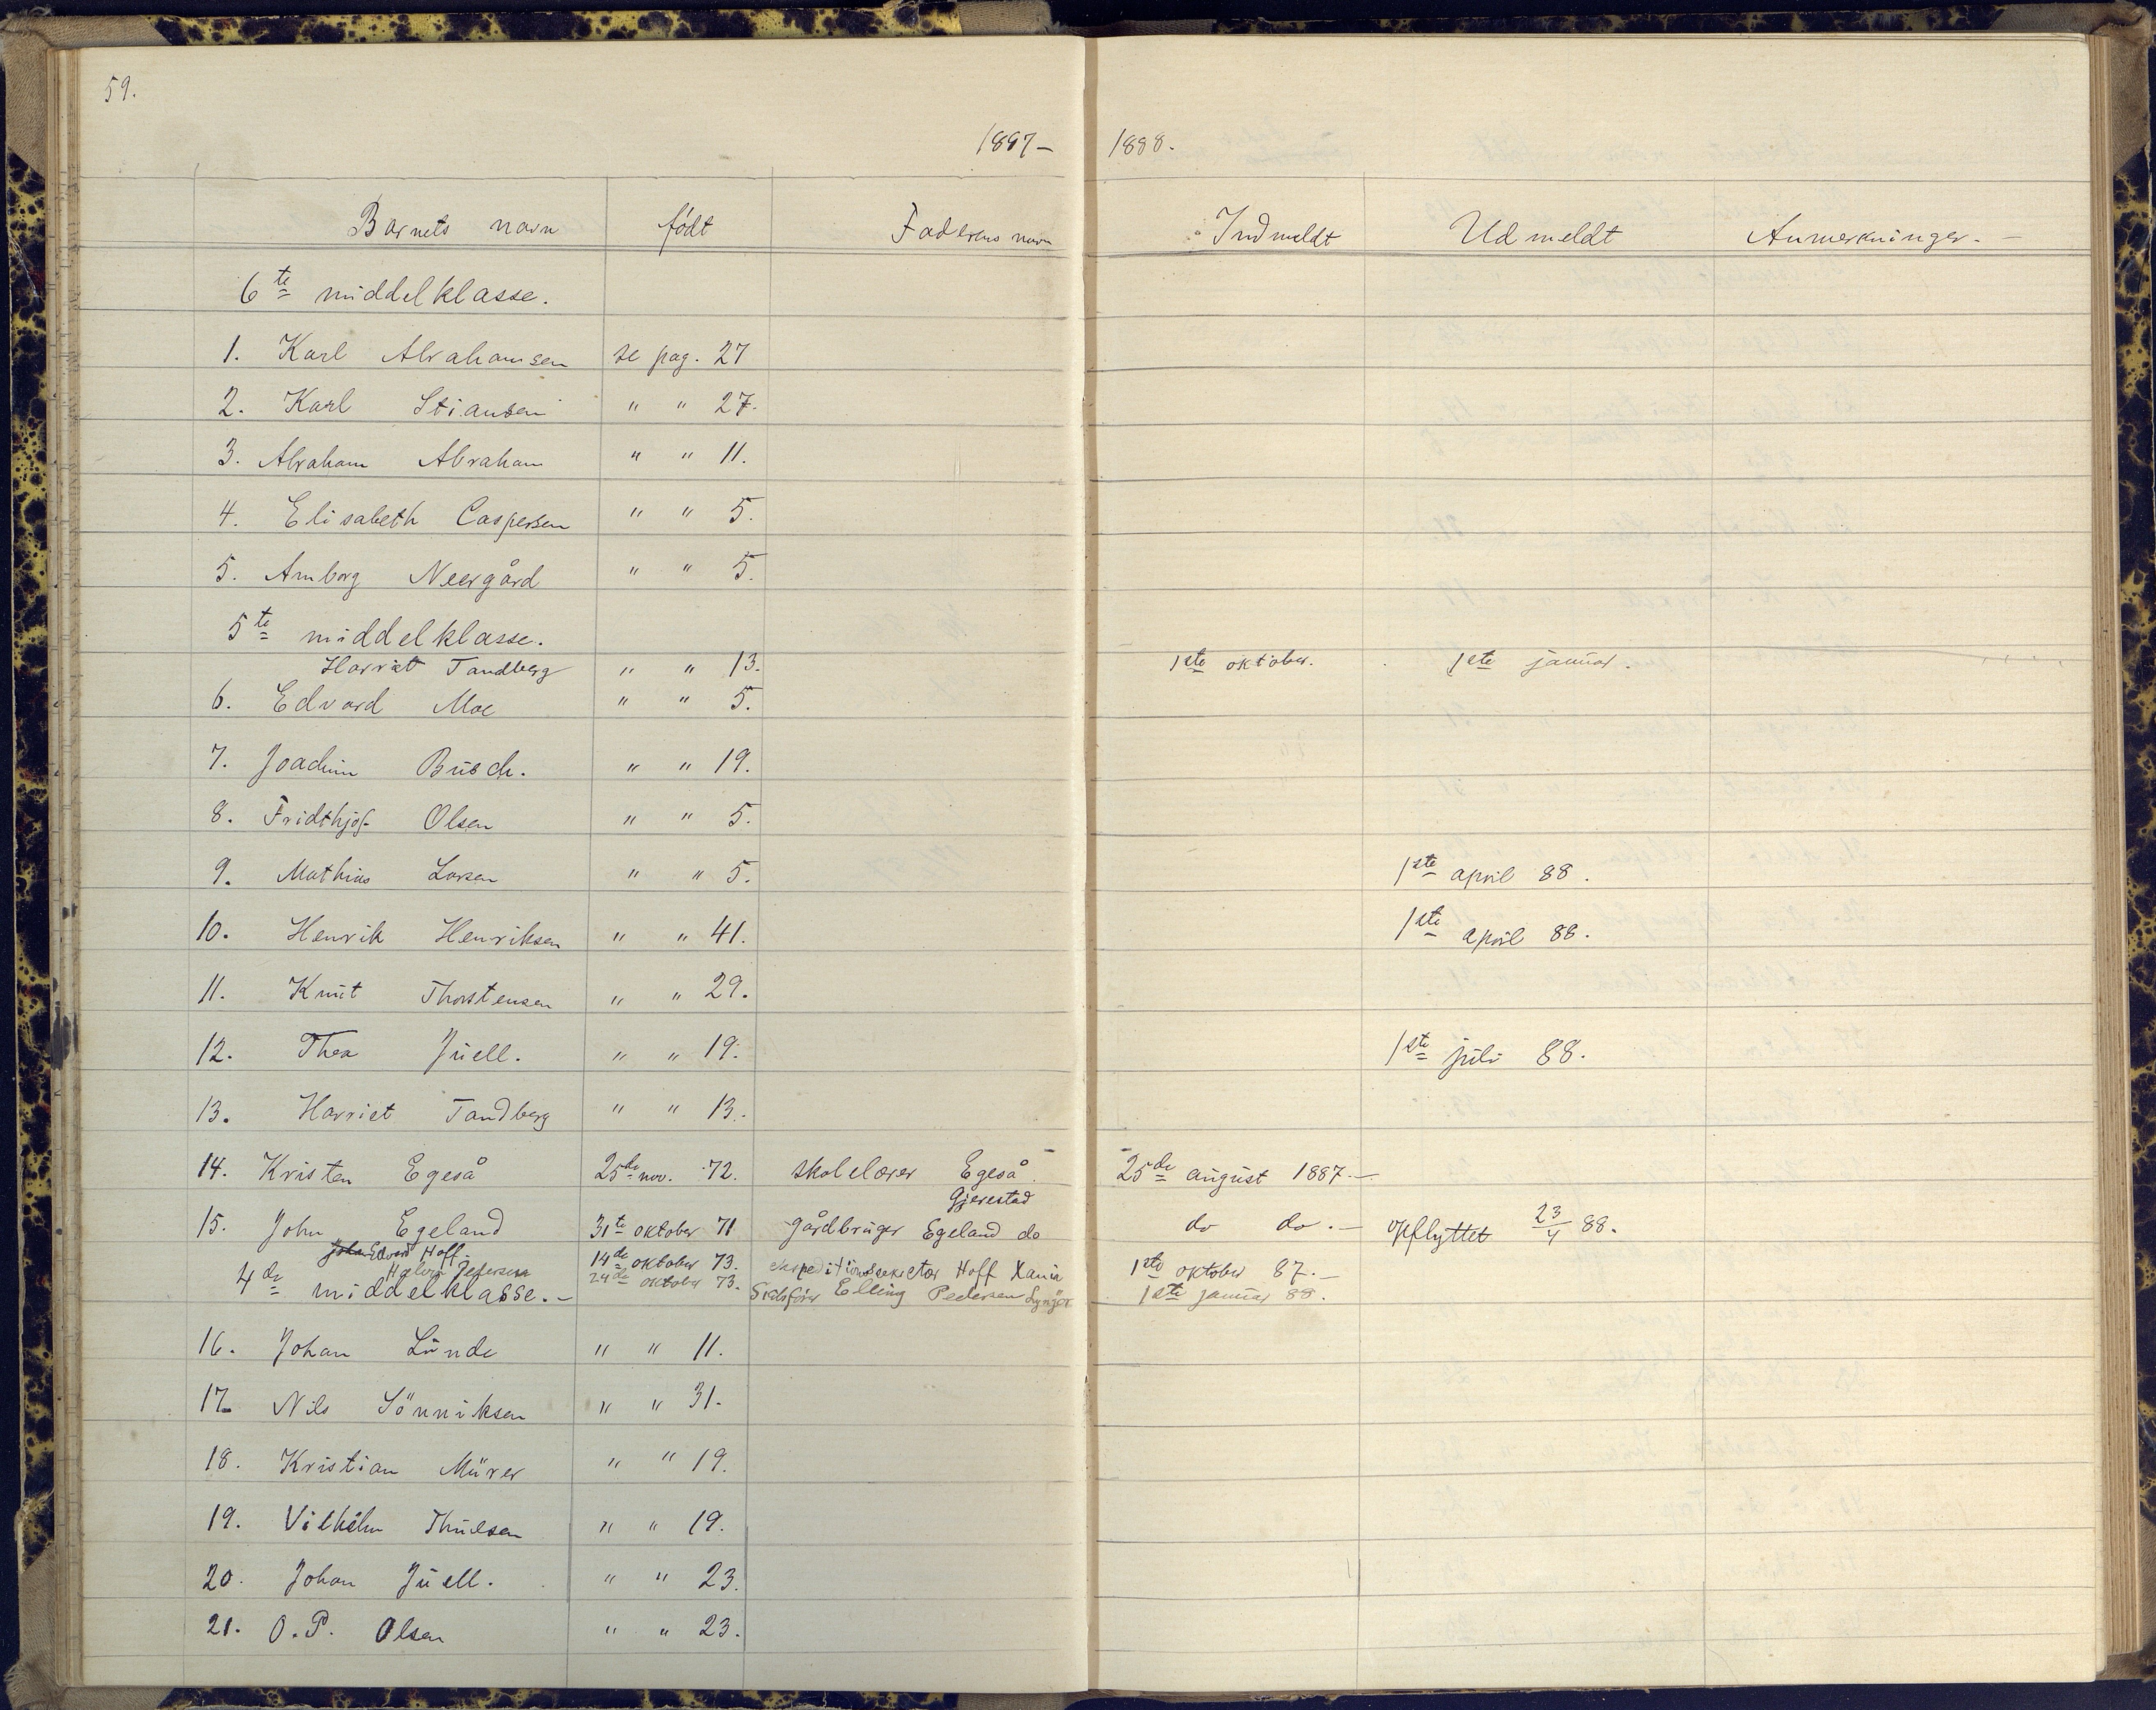 59.
1887— 1888.
Barnets navn født Faderens navn Indmeldt Udmeldt Anmerkninger.—
6te middelklasse.
1. Karl Abrahamsen se pag. 27
2. Karl Stiansen " " 27.
3. Abraham Abraham " " 11.
4. Elisabeth Caspersen " " 5.
5. Amborg Neergård " " 5.
5te middelklasse.
Harriet Tandberg " " 13. 1ste oktober. 1ste januar.
6. Edvard Moe " " 5.
7. Joachim Busch. " " 19.
8. Fridthjof Olsen " " 5.
9. Mathias Larsen " " 5. 1ste april 88.
10. Henrik Henriksen " " 41. 1ste april 88.
11. Knut Thorstensen " " 29.
12. Thea Juell. " " 19. 1ste juli 88.
13. Harriet Tandberg " " 13.
14. Kristen Egeså 25de nov. 72. skolelærer Egeså. Gjerestad 25de august 1887.—
15. John Egeland 31te oktober 71 gårdbruger Egeland do do do.— opflyttet 23/4 88.
John Edvard Hoff. 14de oktober 73. ekspeditionssekretær Hoff Xania 1ste oktober 87.—
Pedersen 24de oktober 73. Elling Pedersen Lyngør 1ste januar 88.
4de middelklasse.—
16. Johan Lunde " " 11.
17. Nils Sönniksen " " 31.
18. Kristian Mürer " " 19.
19. Vilhelm Thulsen " " 19.
20. Johan Juell. " " 23.
21. O. P. Olsen " " 23.